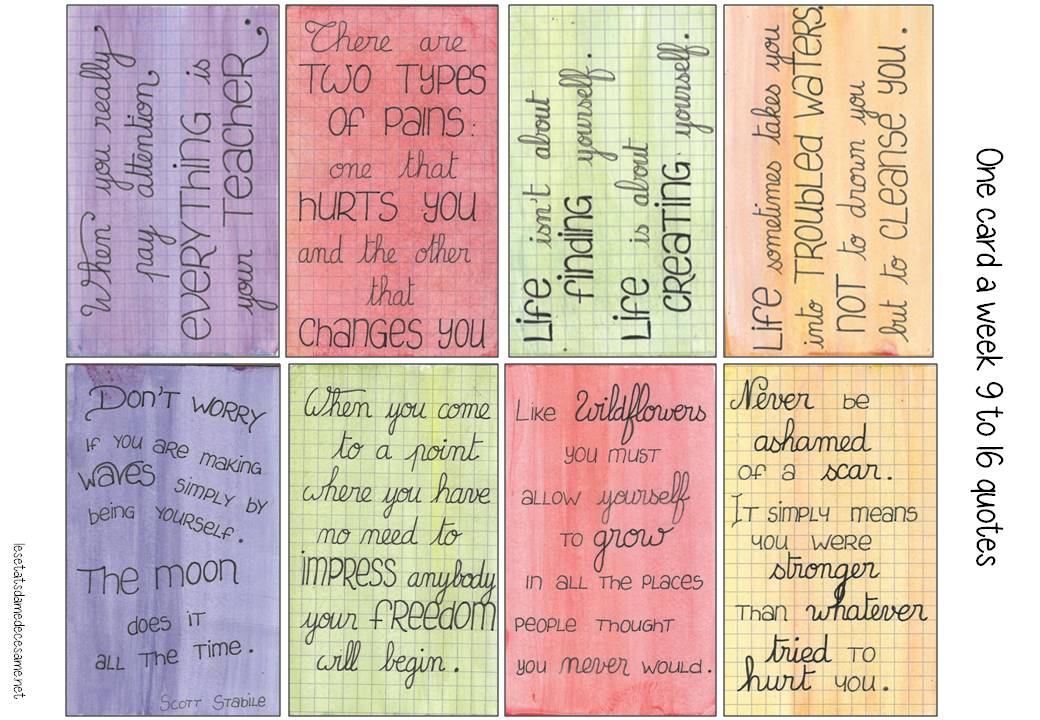 When you really
pay attention
EVERYTHING is
your TEACHER.
There are
TWO TYPES
OF PAINS:
one that
HURTS YOU
and the other
that
CHANGES YOU
Life isn't about
finding yourself.
Life is about
CREATING yourself.
Life sometimes takes you
into TROUBLED WATERS
NOT to drown you
but to CLEANSE YOU.
Don't worry
if you are making
waves simply by
being yourself.
The moon
does it
all the time.
Scott Stabile
When you come
to a point
where you have
no need to
IMPRESS anybody
your FREEDOM
will begin.
Like Wildflowers
you must
allow yourself
to grow
in all the places
people thought
you never would.
Never be
ashamed
of a scar.
It simply means
you were
stronger
than whatever
tried to
hurt you.
One card a week 9 to 16 quotes
lesetatsdamedecesame.net